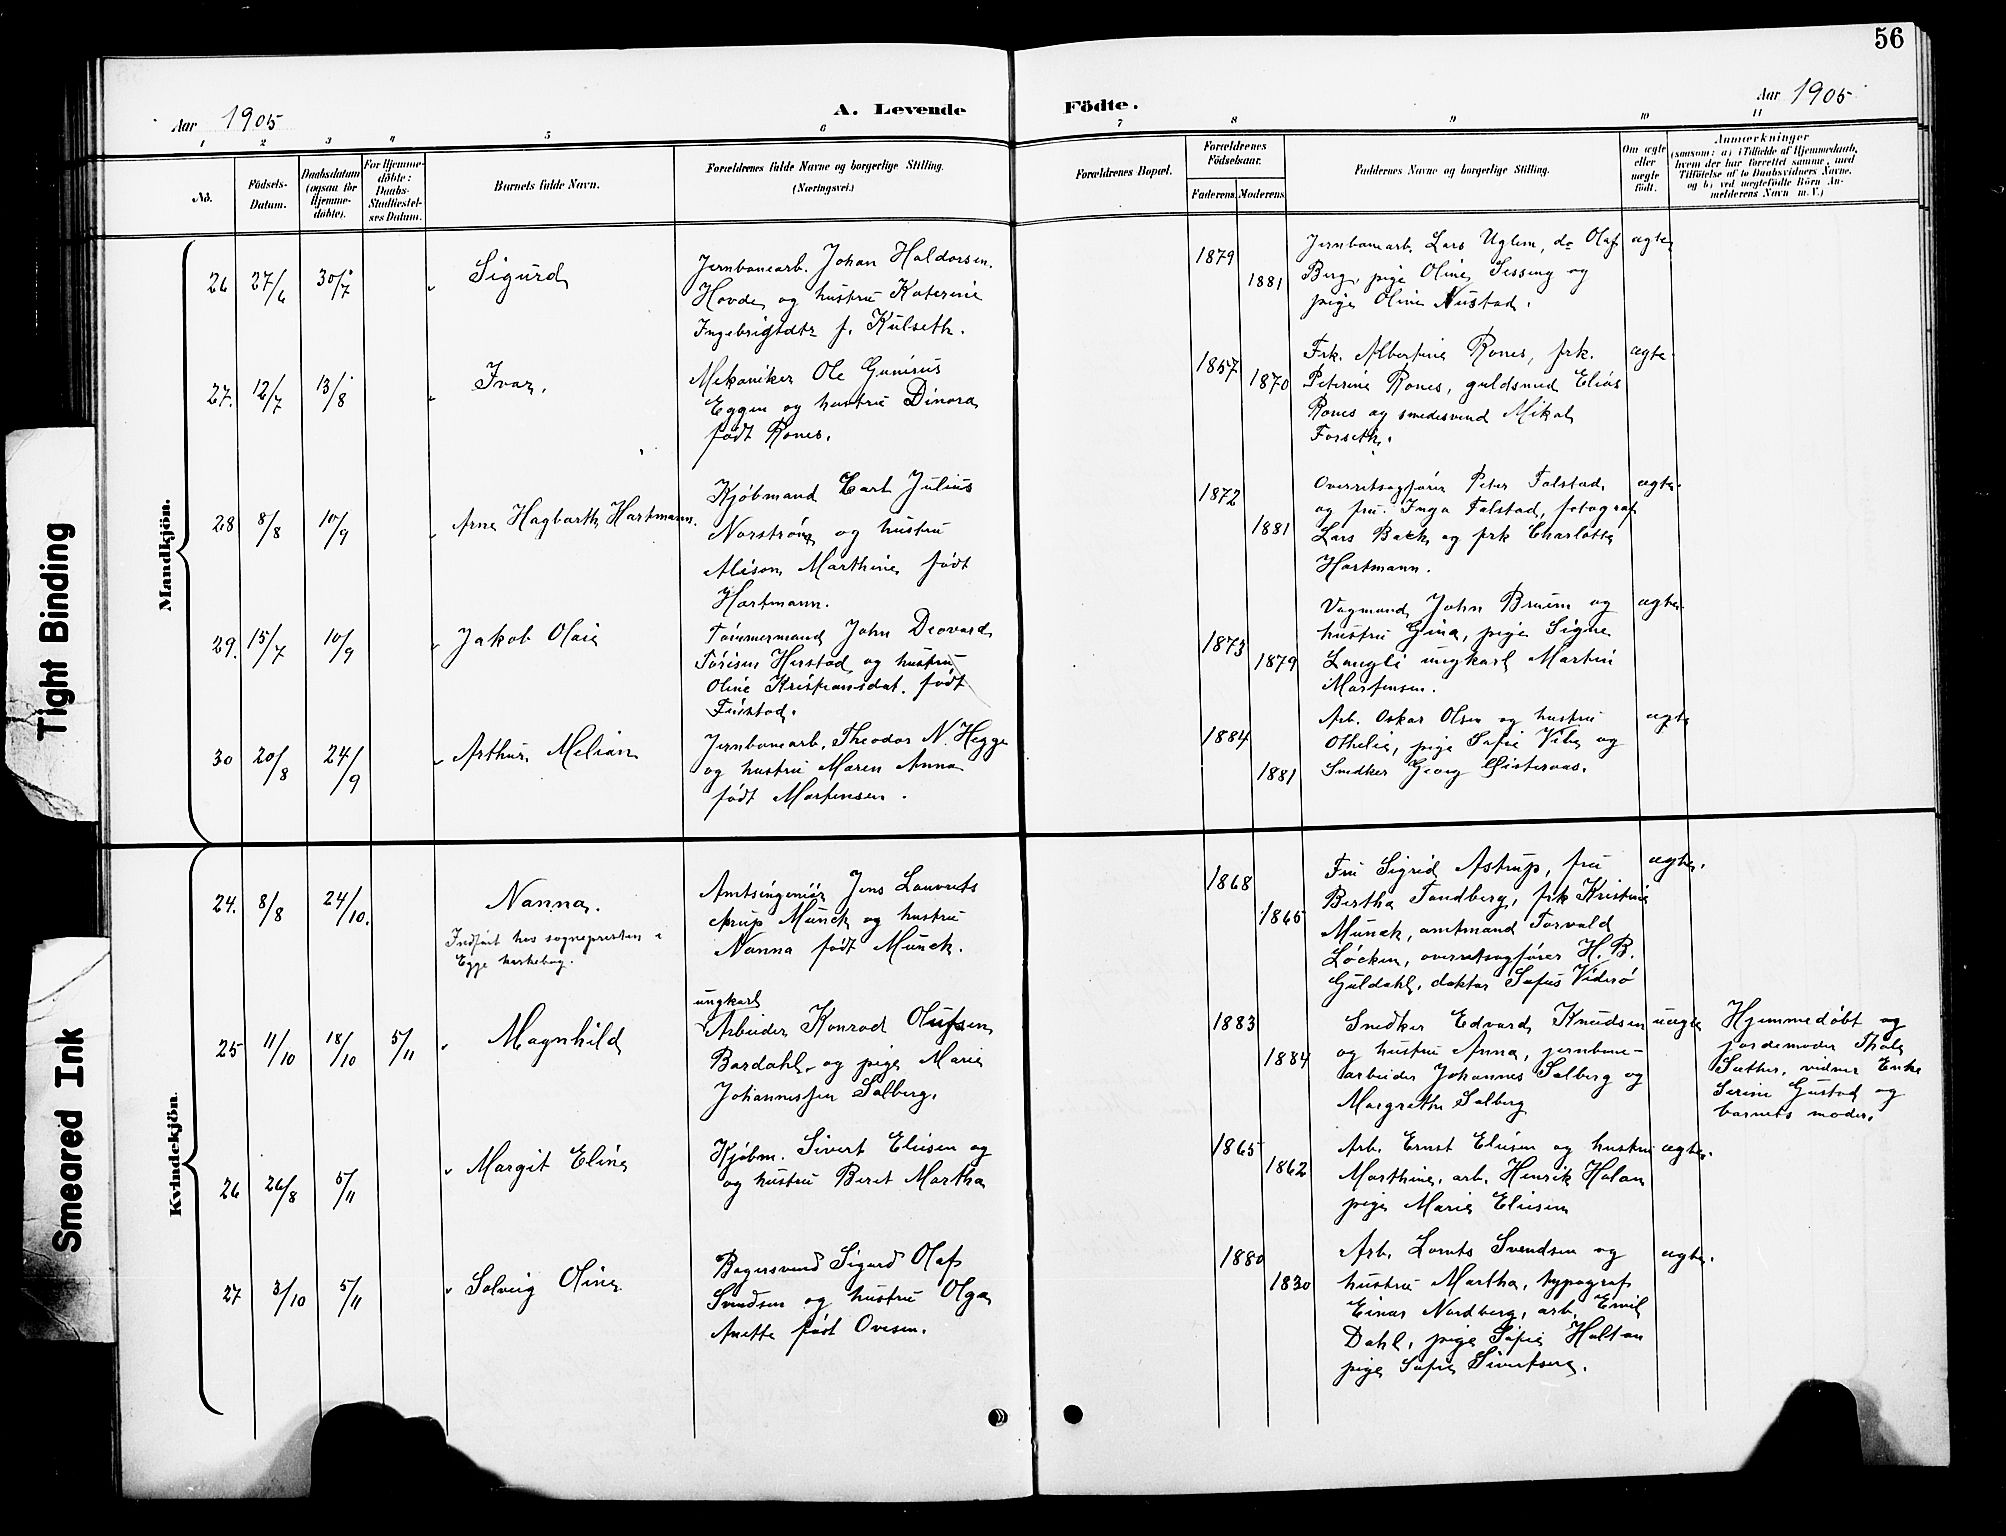 56
Aar 1905
A. Levende
Födte.
Aar 1905
1 2 3 4 5 6 7 8 9 10 11
No.
Födsels-
Datum.
Daabsdatum
(ogsaa for
Hjemme-
døbte).
For Hjemme-
döbte:
Daabs-
Stadfæstel-
ses Datum.
Barnets fulde Navn.
Forældrenes fulde Navne og borgerlige Stilling.
(Næringsvei.)
Forældrenes Bopæl.
Forældrenes
Födselsaar.
Faderens
Moderens
Faddernes Navne og borgerlige Stilling.
Om ægte
eller
uægte
födt.
Anmærkninger
(saasom: a) i Tilfælde af Hjemmedaab,
hvem der har forrettet samme, med
Tilföielse af to Daabsvidners Navne,
og b) ved uægtefödte Börn An-
melderens Navn m. V.)
Mandkjön.
26 27/6 30/7 " Sigurd
Jernbanearb. Johan Haldorsen
Hovde og hustru Katerine
Ingebrigtdtr f. Kulseth.
1879
1881
Jernbanearb. Lars Uglem, do Olaf
Berg, pige Oline Sessing og
pige Oline Nustad.
ægte
27. 12/7 13/8 " Ivar.
Mekaniker Ole Gunerius
Eggen og hustru Dinora
født Rones.
1857
1870
Frk. Albertine Rones, frk.
Peterine Rones, guldsmed Elias
Rones og smedesvend Mikal
Forseth.
ægte
28 8/8 10/9 " Arne Hagbarth Hartmann.
Kjøbmand Carl Julius
Norstrøm og hustru
Alison Marthine født
Hartmann.
1872
1881
Overretsagfører Peter Falstad
og fru Inga Falstad, fotograf
Lars Bach og frk Charlotte
Hartmann.
ægte
29. 15/7 10/9 " Jakob Olaie
Tømmermand John Deovard
Tørisen Herstad og hustru
Oline Kristiansdat. født
1873
1879
Vogmand John Bruem og
hustru Gina, pige Signe
Langli ungkarl Martin
Martensen.
ægte
30 20/8 24/9 " Arthur Melian
Jernbanearb. Theodor N. Hegge
og hustru Maren Anna
født Martensen.
1884
1881
Arb. Oskar Olsen og hustru
Othelie, pige Sofie Vibe og
Snedker Georg Gisteraas.
ægte
Kvindekjön.
24. 8/8 24/10. Nanna.
Indført hos sognepresten i
Egge kirkebog.
Amtsingeniør Jens Lauvrits
Arup Munck og hustru
Nanna født Munck.
1868
1865
Fru Sigrid Astrup, fru
Bertha Tandberg, frk Kristine
Munck, amtmand Torvald
Løcken, overretsagfører H. B.
Guldahl, doktor Sofus Viderø
ægte.
25 11/10 18/10 5/11 " Magnhild
ungkarl
Arbeider Konrad Olufsen
Bardahl og pige Marie
Johannessen Salberg.
1883
1884
Snedker Edvard Knudsen
og hustru Anna, jernbane-
arbeider Johannes Salberg og
Margrethe Salberg
uægte
Hjemmedøbt og
jordemoder Thale
Sæther, vidner Enke
Serine Gustad og
barnets moder.
26 26/8 5/11 " Margit Eline
Kjøbm. Sivert Eliesen og
og hustru Beret Martha
1865
1862
Arb. Ernst Eliesen og hustru
Marthine, arb. Henrik Halan
pige Marie Eliesen
ægte.
27 3/10 5/11 " Solveig Oline
Bagersvend Sigurd Olaf
Svendsen og hustru Olga
Anette født Ovesen.
1880
1830
Arb. Lornts Svendsen og
hustru Martha, typograf
Einar Nordberg, arb. Emil
Dahl, pige Sofie Haltan
pige Sofie Sivertsen.
ægte.
Tight Binding
Smeared Ink